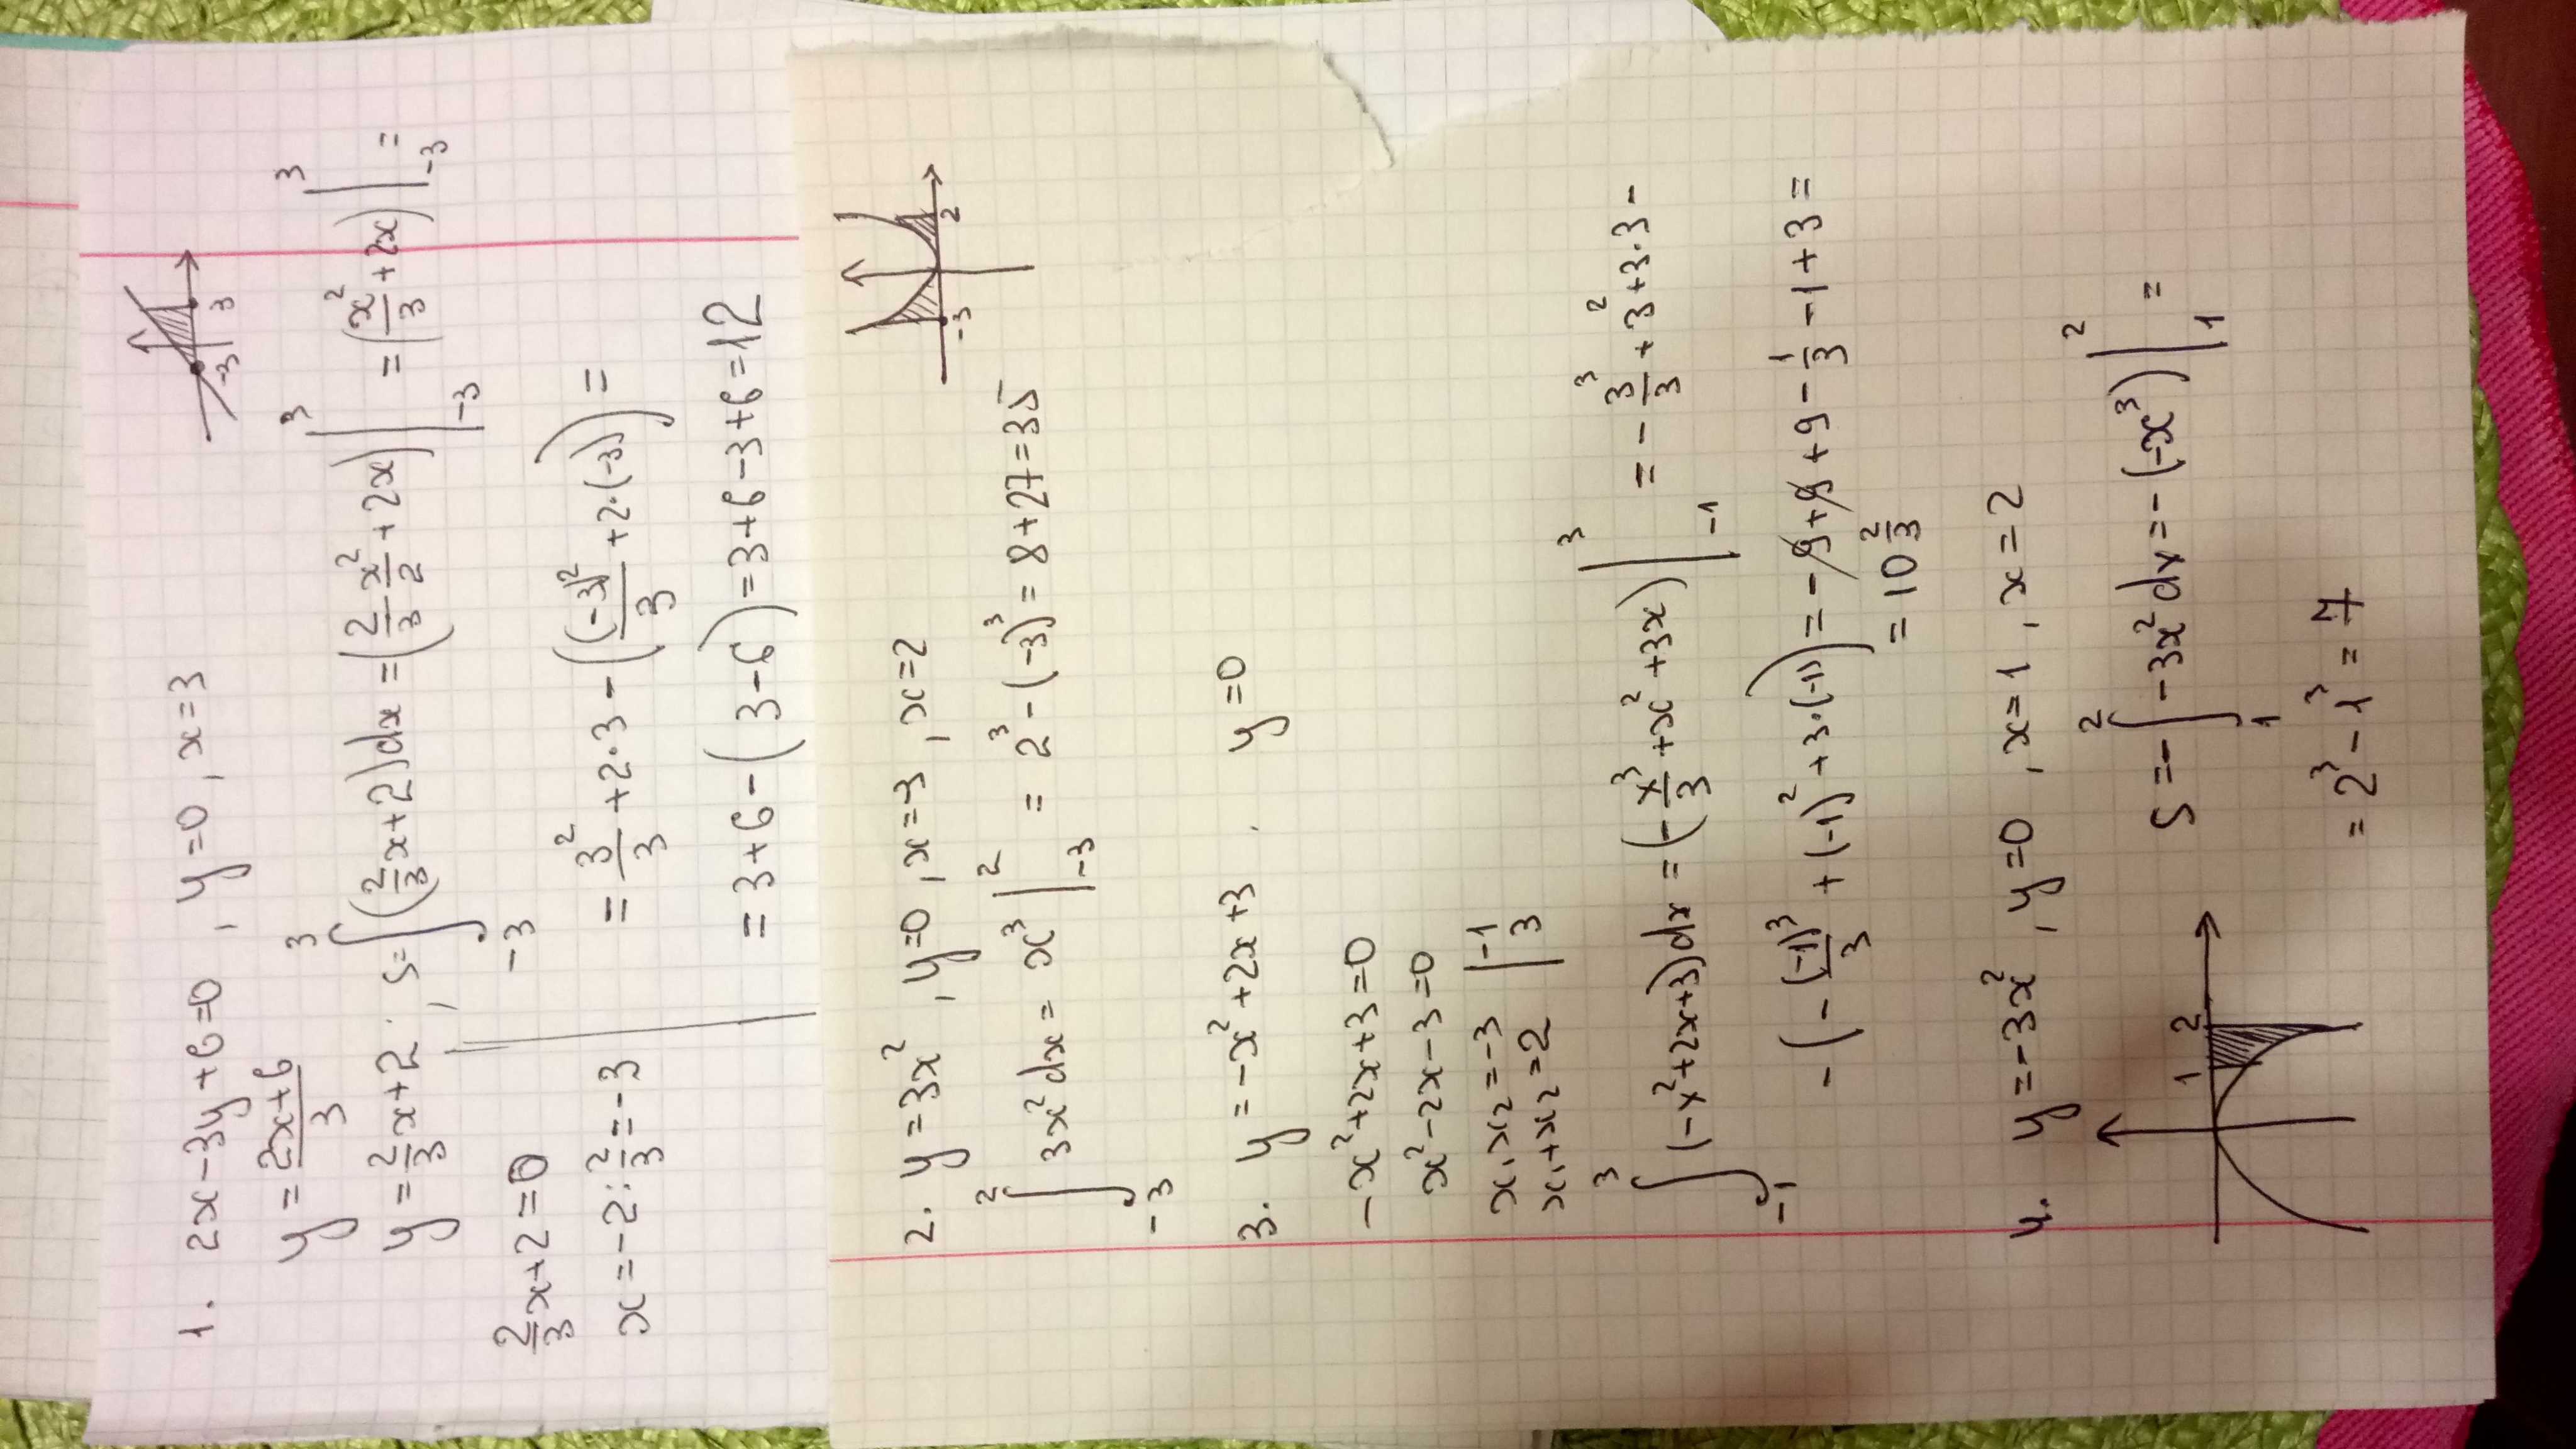 1. 2x-3y+6=0 , y=0, x=3
y = (2x+6)/3
y = 2/3 x+2 , S=∫_{-3}^{3} (2/3 x+2)dx = (2/3 x²/2 + 2x)|_{-3}^{3} = (x²/3 + 2x)|_{-3}^{3} =
2/3 x+2=0
x=-2:2/3=-3
= 3²/3 + 2·3 - ((-3)²/3 + 2·(-3)) =
= 3+6-(3-6) = 3+6-3+6=12
-3 3
2. y=3x² , y=0, x=-3 , x=2
∫_{-3}^{2} 3x²dx = x³|_{-3}^{2} = 2³-(-3)³ = 8+27=35
-3 2
3. y=-x²+2x+3 y=0
-x²+2x+3=0
x²-2x-3=0
x₁x₂=-3 | -1
x₁+x₂=2 | 3
∫_{-1}^{3} (-x²+2x+3)dx = (-x³/3 + x² + 3x)|_{-1}^{3} = -3³/3 + 3² + 3·3 -
- (-(-1)³/3 + (-1)² + 3·(-1)) = -9+9+9-1/3-1+3=
= 10 2/3
4. y=-3x² , y=0 , x=1 , x=2
1 2
S=-∫_{1}^{2} -3x²dx = -(-x³)|_{1}^{2} =
= 2³-1³ = 7